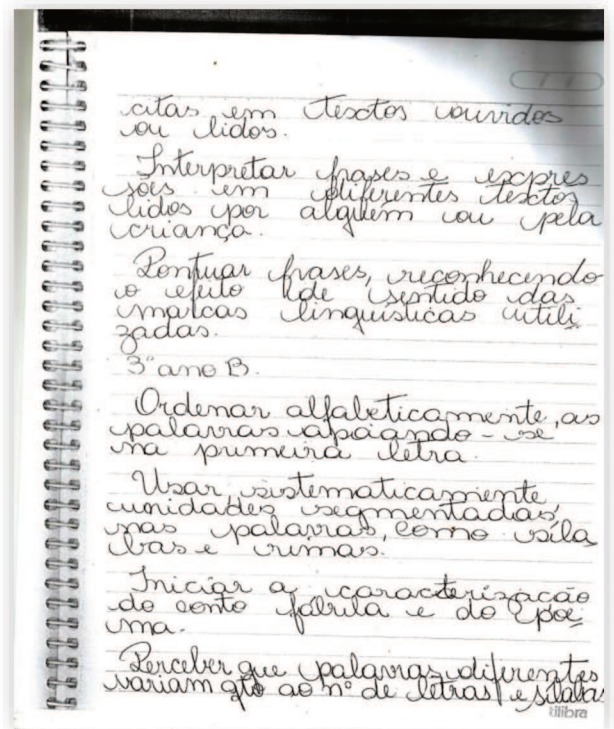 citas em textos ouvidos
ou lidos.
Interpretar frases e expres
sões em diferentes textos
lidos por alguém ou pela
criança.
Pontuar frases, reconhecendo
o efeito de sentido das
marcas linguísticas utili
zadas.
3º ano B.
Ordenar alfabeticamente, as
palavras apoiando-se
na primeira letra.
Usar sistematicamente
unidades segmentadas,
nas palavras, como síla
bas e rimas.
Iniciar a caracterização
do conto fábula e do poe
ma.
Perceber que palavras diferentes
variam qto ao nº de letras e sílabas
tilibra